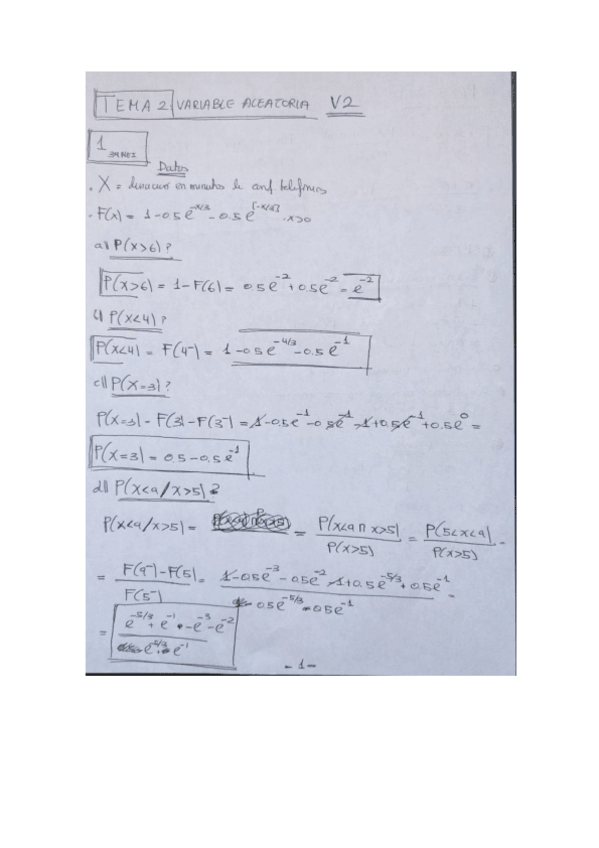 TEMA 2 VARIABLE ALEATORIA V2
1
Datos
· X = duracion en minutos de conf telefonicas
· F(x) = 1-0.5e^{-x/3} - 0.5e^{[-x/3]} · x>0
a) P(x>6)?
P(x>6) = 1-F(6) = 0.5e^{-2} + 0.5e^{-2} = e^{-2}
P(x<4)?
P(x<4) = F(4^-) = 1-0.5e^{-4/3} - 0.5e^{-1}
c) P(X=3)?
P(X=3) = F(3) - F(3^-) = 1-0.5e^{-1} - 0.5e^{-1} - 1+0.5e^{-1} + 0.5e^{0} =
P(X=3) = 0.5 - 0.5e^{-1}
d) P(x<9/x>5)?
P(x<9/x>5) = = P(x<9 ∩ x>5) / P(x>5) = P(5<x<9) / P(x>5) =
= F(9^-) - F(5) / F(5^-) = 1-0.5e^{-3} - 0.5e^{-2} - 1+0.5e^{-5/3} + 0.5e^{-1} / 0.5e^{-5/3} 0.5e^{-1} =
= e^{-5/3} + e^{-1} - e^{-3} - e^{-2} / e^{-5/3} e^{-1}
- 1 -